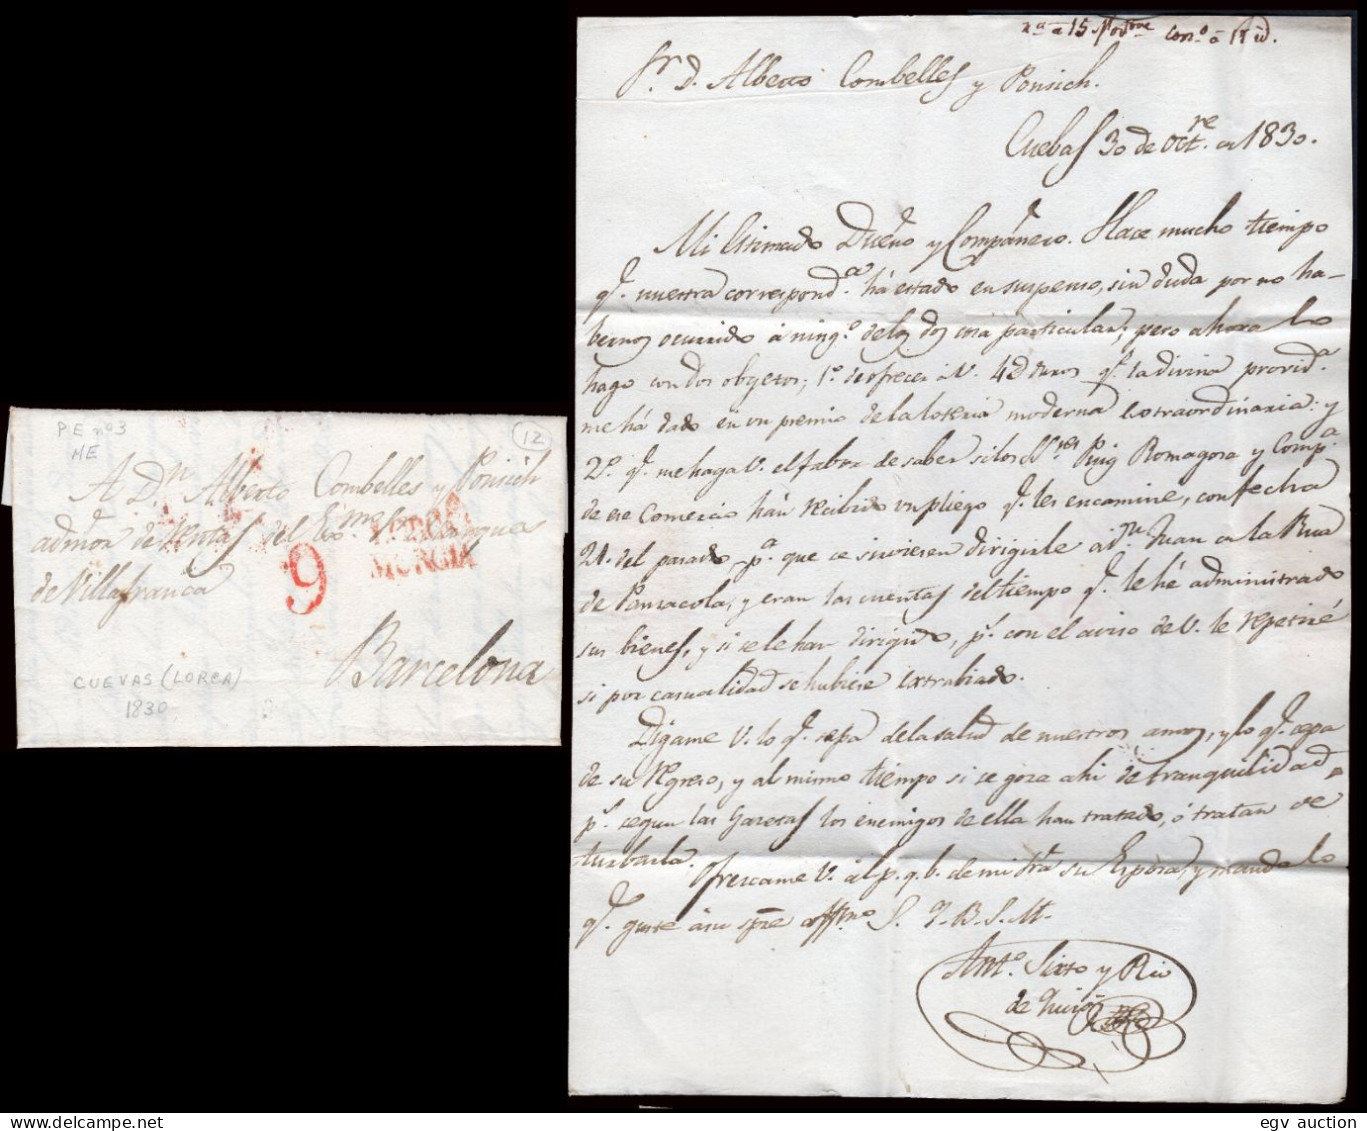 PE nº 3
ME
12
A Dn Alberto Combelles y Ponsich
admor de rentas del Exmo. Sr. Marques
de Villafranca
LORCA
MURCIA
9
Barcelona
CUEVAS (LORCA)
1830
Rda a 15 Novbre Conto a 17 id.
Sr. D. Alberto Combelles y Ponsich.
Cuebas 30 de Octre. de 1830.
Mi Estimado Dueño y Compañero. Hace mucho tiempo
q.e nuestra correspond.a há estado en suspenso, sin duda por no ha-
bernos ocurrido á ning.o de los dos cosa particular; pero ahora lo
hago con dos objetos; 1.o de ofrecer á V. 40 duros q.e la divina provid.a
me há dado en un premio de la loteria moderna extraordinaria: y
2.o q.e me haga V. el fabor de saber si los S.res Puig Romagosa y Comp.a
de ese Comercio hán recibido un pliego q.e les encaminé, con fecha
24. del pasado, p.a que se sirviesen dirigirle a D.n Juan de la Rua
de Pansacola, y eran las cuentas del tiempo q.e le hé administrado
sus bienes, y si se le han dirigido, p.s con el aviso de V. le repetiré
si por casualidad se hubiese extrabiado.
Digame V. lo q.e sepa de la salud de nuestros amos, y lo q.e sepa
de su regreso, y al mismo tiempo si se goza ahi de tranquilidad,
p.s segun las gazetas los enemigos de ella han tratado, ó tratan de
turbarla.
Ofrezcame V. á l. p. q. b. de mi S.ra su Esposa, y mande lo
q.e guste á su spre affmo S. Q. B. S. M.
Ant.o Sixto y Rio
de
egv auction